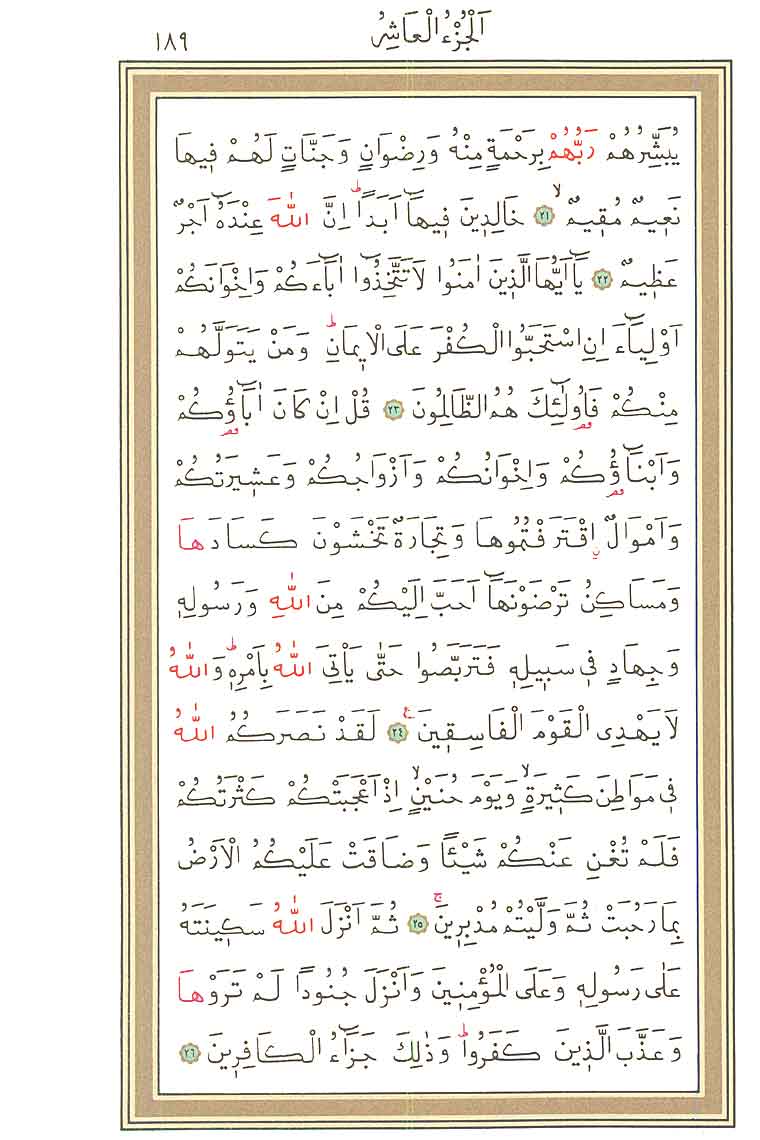 اَلْجُزْءُ الْعَاشِرُ
١٨٩
يُبَشِّرُهُمْ رَبُّهُمْ بِرَحْمَةٍ مِنْهُ وَرِضْوَانٍ وَجَنَّاتٍ لَهُمْ ف۪يهَا
نَع۪يمٌ مُق۪يمٌۙ ﴿٢١﴾ خَالِد۪ينَ ف۪يهَٓا اَبَدًاۜ اِنَّ اللّٰهَ عِنْدَهُٓ اَجْرٌ
عَظ۪يمٌ ﴿٢٢﴾ يَٓا اَيُّهَا الَّذ۪ينَ اٰمَنُوا لَا تَتَّخِذُٓوا اٰبَٓاءَكُمْ وَاِخْوَانَكُمْ
اَوْلِيَٓاءَ اِنِ اسْتَحَبُّوا الْكُفْرَ عَلَى الْا۪يمَانِۜ وَمَنْ يَتَوَلَّهُمْ
مِنْكُمْ فَاُو۬لٰٓئِكَ هُمُ الظَّالِمُونَ ﴿٢٣﴾ قُلْ اِنْ كَانَ اٰبَٓاؤُ۬كُمْ
وَاَبْنَٓاؤُ۬كُمْ وَاِخْوَانُكُمْ وَاَزْوَاجُكُمْ وَعَش۪يرَتُكُمْ
وَاَمْوَالٌ اِقْتَرَفْتُمُوهَا وَتِجَارَةٌ تَخْشَوْنَ كَسَادَهَا
وَمَسَاكِنُ تَرْضَوْنَهَٓا اَحَبَّ اِلَيْكُمْ مِنَ اللّٰهِ وَرَسُولِه۪
وَجِهَادٍ ف۪ي سَب۪يلِه۪ فَتَرَبَّصُوا حَتّٰى يَأْتِيَ اللّٰهُ بِاَمْرِه۪ۜ وَاللّٰهُ
لَا يَهْدِي الْقَوْمَ الْفَاسِق۪ينَ۟ ﴿٢٤﴾ لَقَدْ نَصَرَكُمُ اللّٰهُ
ف۪ي مَوَاطِنَ كَث۪يرَةٍۙ وَيَوْمَ حُنَيْنٍۙ اِذْ اَعْجَبَتْكُمْ كَثْرَتُكُمْ
فَلَمْ تُغْنِ عَنْكُمْ شَيْـًٔا وَضَاقَتْ عَلَيْكُمُ الْاَرْضُ
بِمَا رَحُبَتْ ثُمَّ وَلَّيْتُمْ مُدْبِر۪ينَۚ ﴿٢٥﴾ ثُمَّ اَنْزَلَ اللّٰهُ سَك۪ينَتَهُ
عَلٰى رَسُولِه۪ وَعَلَى الْمُؤْمِن۪ينَ وَاَنْزَلَ جُنُودًا لَمْ تَرَوْهَا
وَعَذَّبَ الَّذ۪ينَ كَفَرُواۜ وَذٰلِكَ جَزَٓاءُ الْكَافِر۪ينَ ﴿٢٦﴾